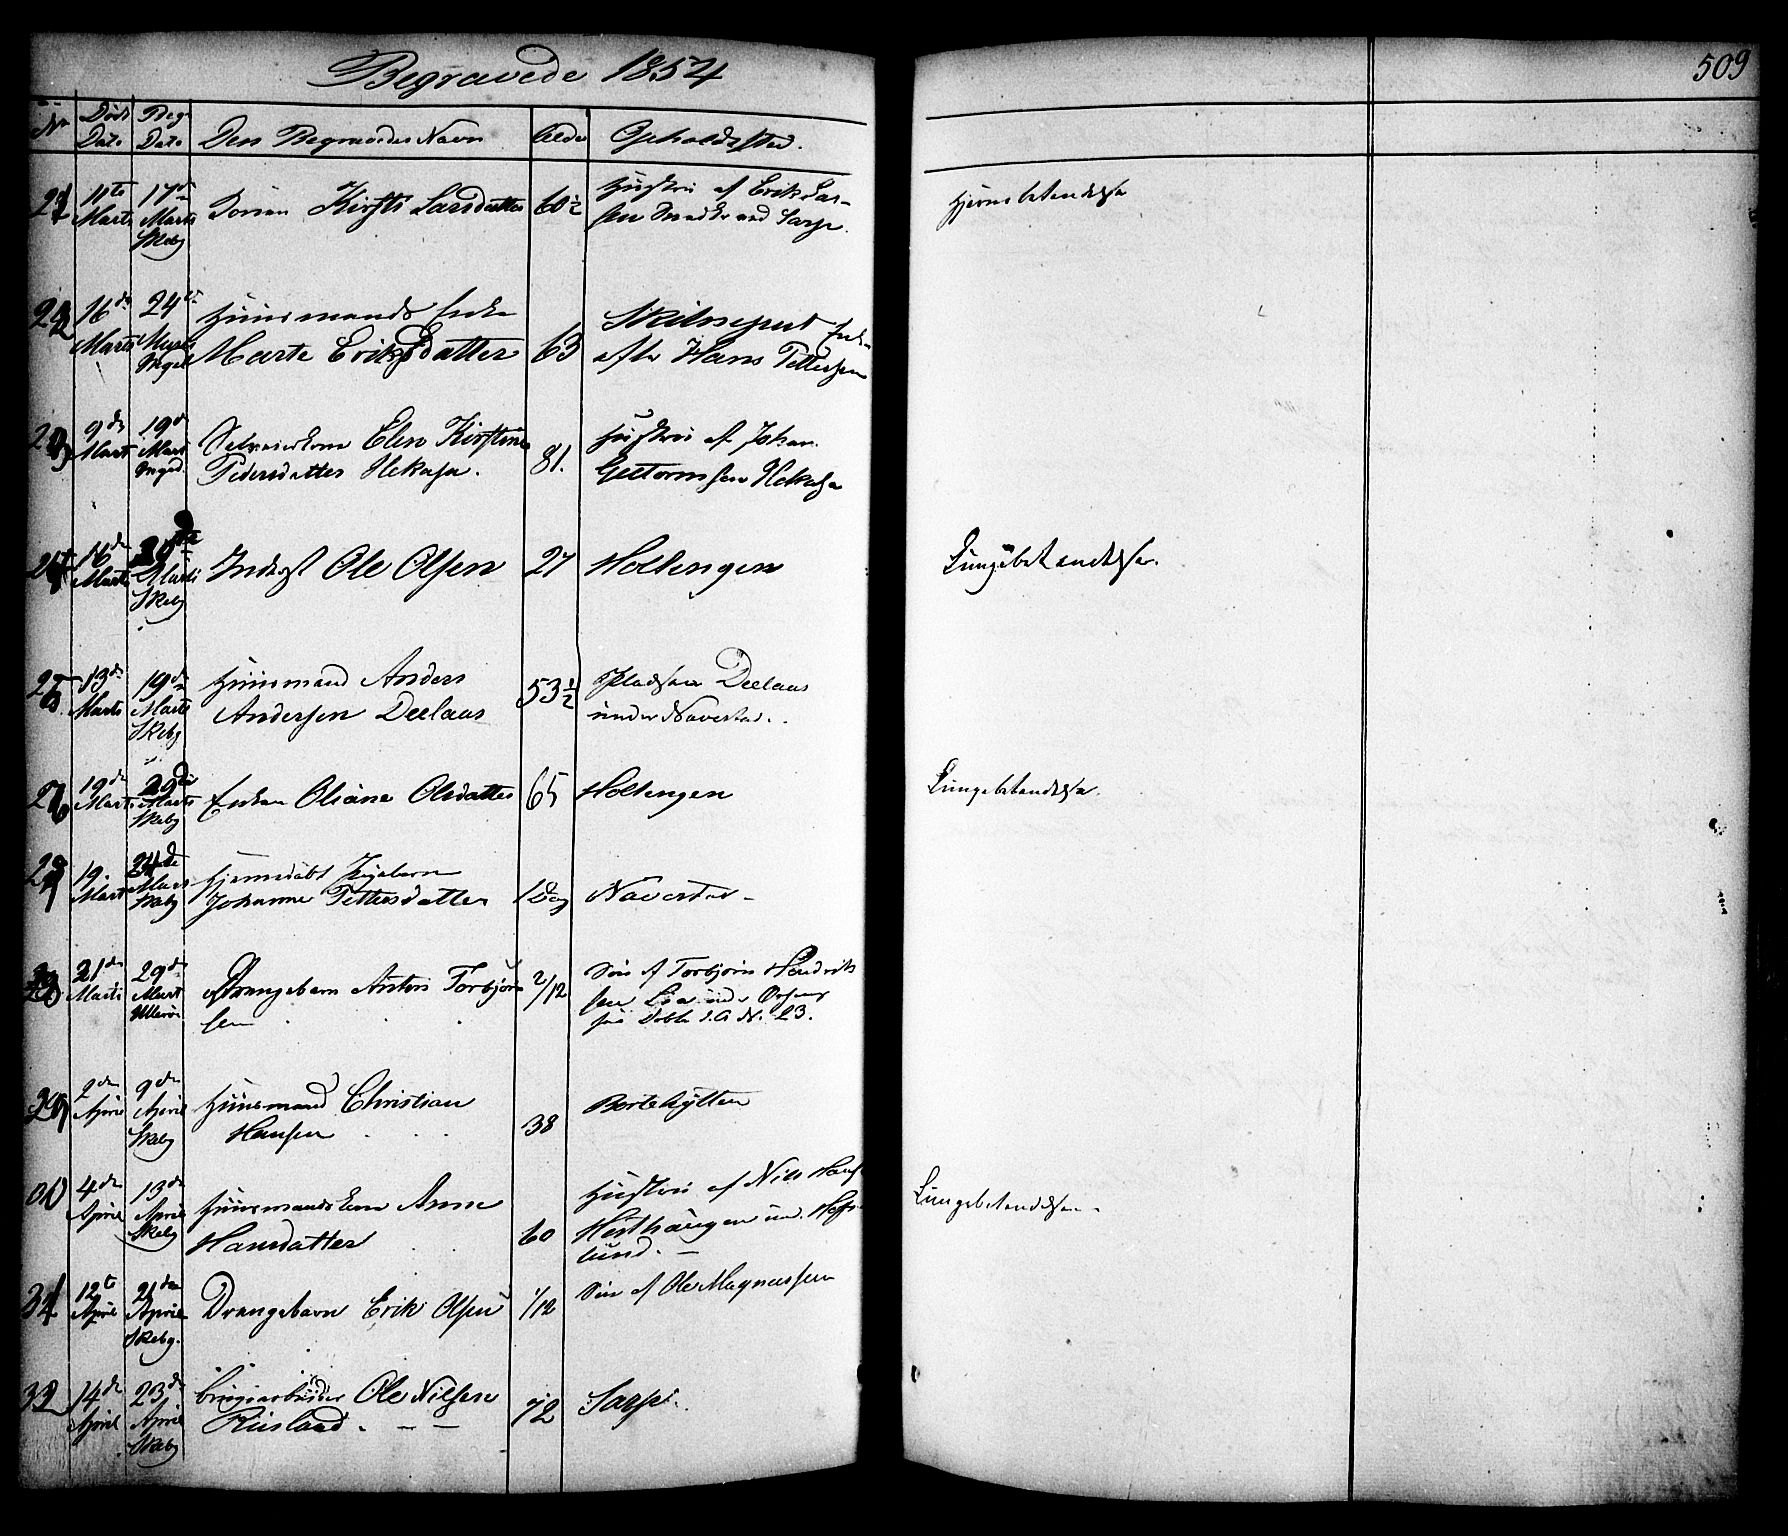 Begravede 1854
509
No Død Dato Beg Dato Den Begravedes Navn Alder Opholdssted.
21 11te Marts 17de Marts Skebg Kirsti Larsdatter 60 1/2 Hustru af Erik Lar-
sen Smedstrand Sarps.
Hjernebetændelse
22 16de Marts 24de Marts Inged Huusmands Enke
Marte Eriksdatter 63 Enke
efter Hans Pettersen
23 9de Marts 19de Marts Inged. Elen Kirstine
Pedersdatter Hekaasa. 81. Hustru af Johan
Guttormsen Hekaasa
24 16de Marts Marts Skebg Inderst Ole Olsen 27 Holtengen
Lungebetændelse.
25 13de Marts 19de Marts Skebg Huusmand Anders
Andersen Deelaas 53 1/2 Pladsen Deelaas
under Navestad.
26 19de Marts 29de Marts Skebg Enken Oliane Olsdatter 65 Holtengen
Lungebetændelse.
27 19. Marts 24de Marts Skebg Hjemmedøbt Pigebarn
Johanne Pettersdatter 1 Dag Navestad
28 21de Marts 29de Mart Ullerø Drengebarn Anton Torbjørn
sen 2/12 Søn af Torbjørn Hendrik
sen Lia under
see Døbte d. A. N. 23.
29 2den April 9de April Skebg Huusmand Christian
Hansen 38 Bortehytten
30 4de April 13de April Skebg Huusmandskone Anne
Hansdatter 60 Hustru af Nils Hans
Hesthaugen und. Hafs-
lund.
Lungebetændelse.
31 12te April 21de April Skebg. Drengebarn Erik Olsen 1/12 Søn af Ole Magnussen
32 14de April 23de April Skebg Brugsarbeider Ole Nilsen
Riisland. 72 Sarps.